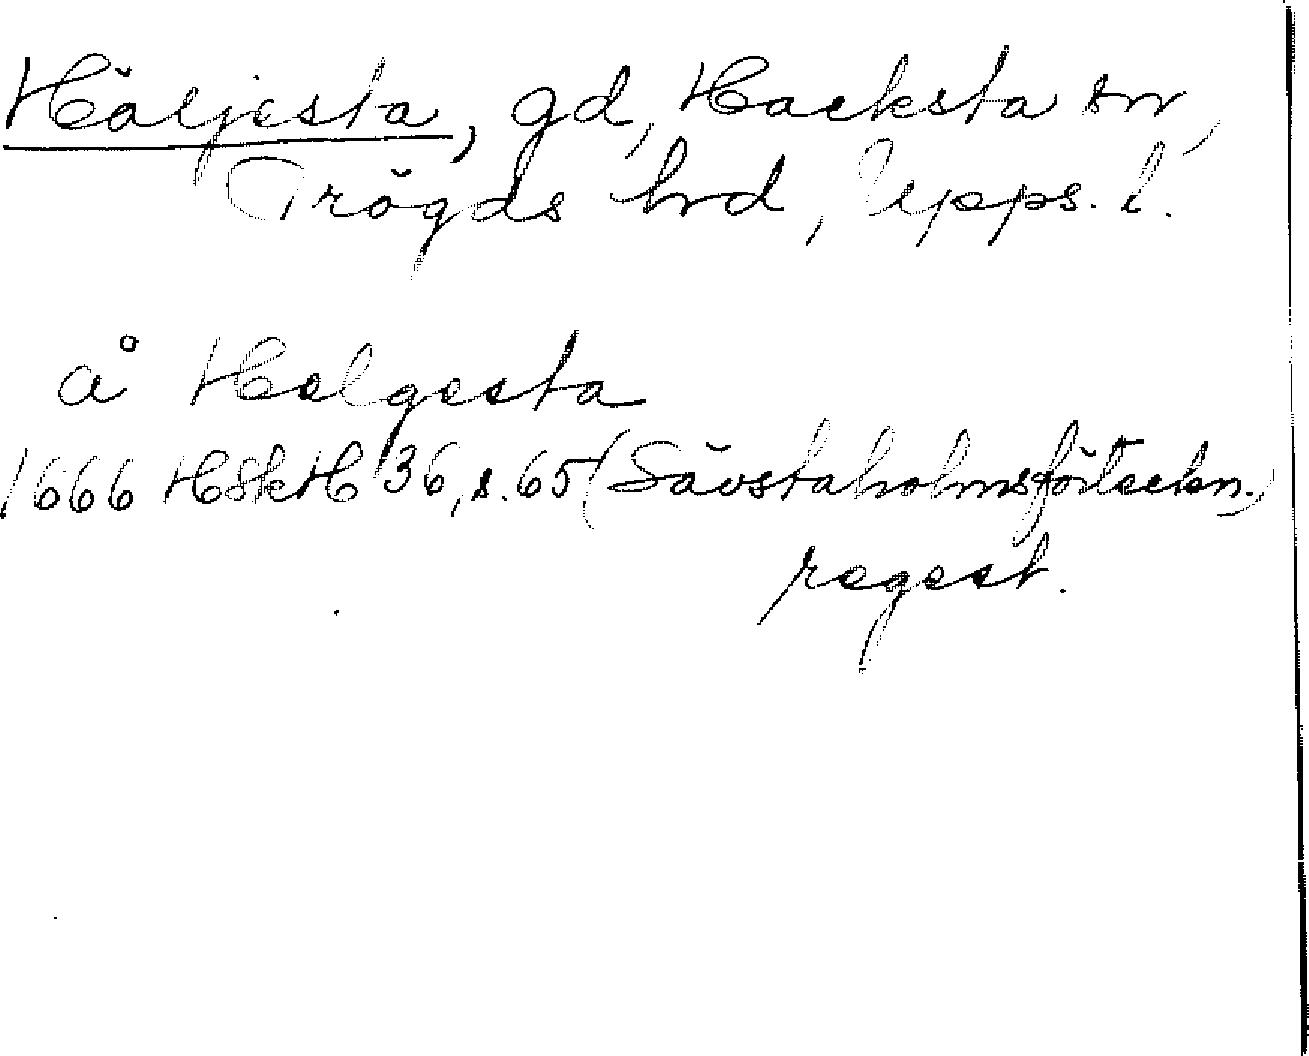 Häljesta, gd, Hacksta sn,
Trögds hrd, Upps. l.
å Helgesta
1666 HSkH 36, s. 65 (Sävstaholmsförteckn.)
regest.